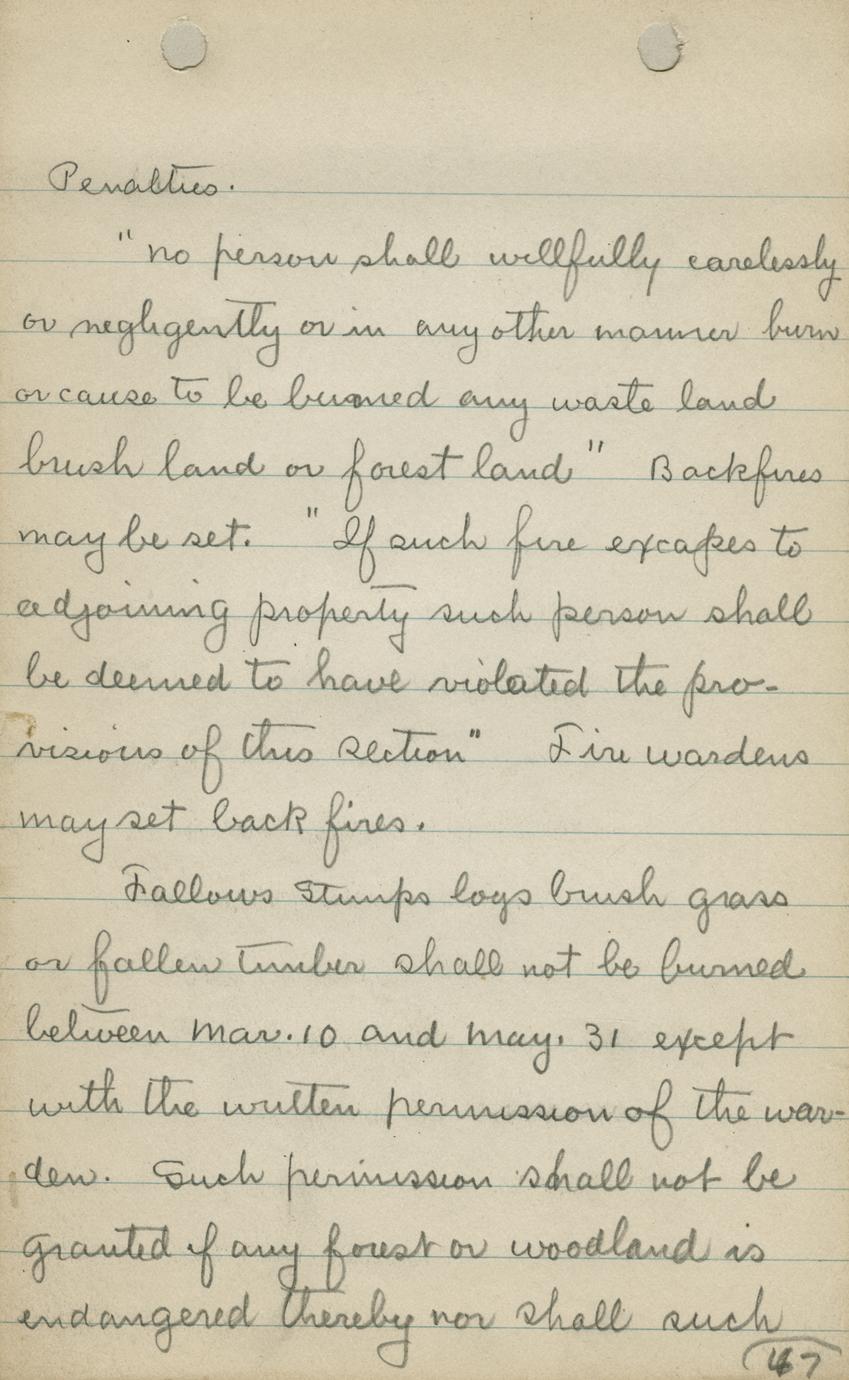 Penalties.
" no person shall willfully carelessly
or negligently or in any other manner burn
or cause to be burned any waste land
brush land or forest land " Backfires
may be set. " If such fire excapes to
adjoining property such person shall
be deemed to have violated the pro-
visions of this section" Fire wardens
may set back fires.
Fallows stumps logs brush grass
or fallen timber shall not be burned
between Mar. 10 and May. 31 except
with the written permission of the war-
den. Such permission shall not be
granted if any forest or woodland is
endangered thereby nor shall such
47